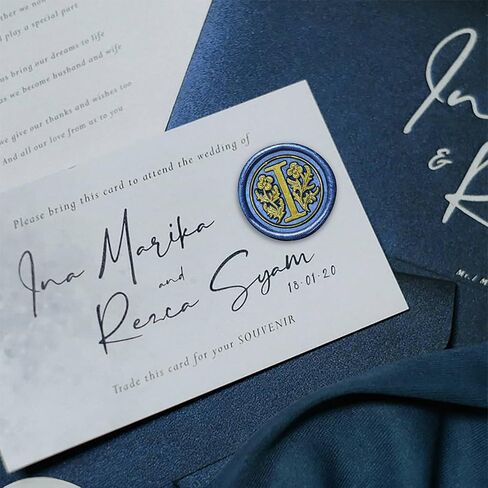 ther we now
d play a special part
us bring our dreams to life
as we become husband and wife
we give our thanks and wishes too
And all our love from us to you
Please bring this card to attend the wedding of
Ina Marika
and
Rezca Syam
18·01·20
Trade this card for your SOUVENIR
I
In
&
R
Mr. / M